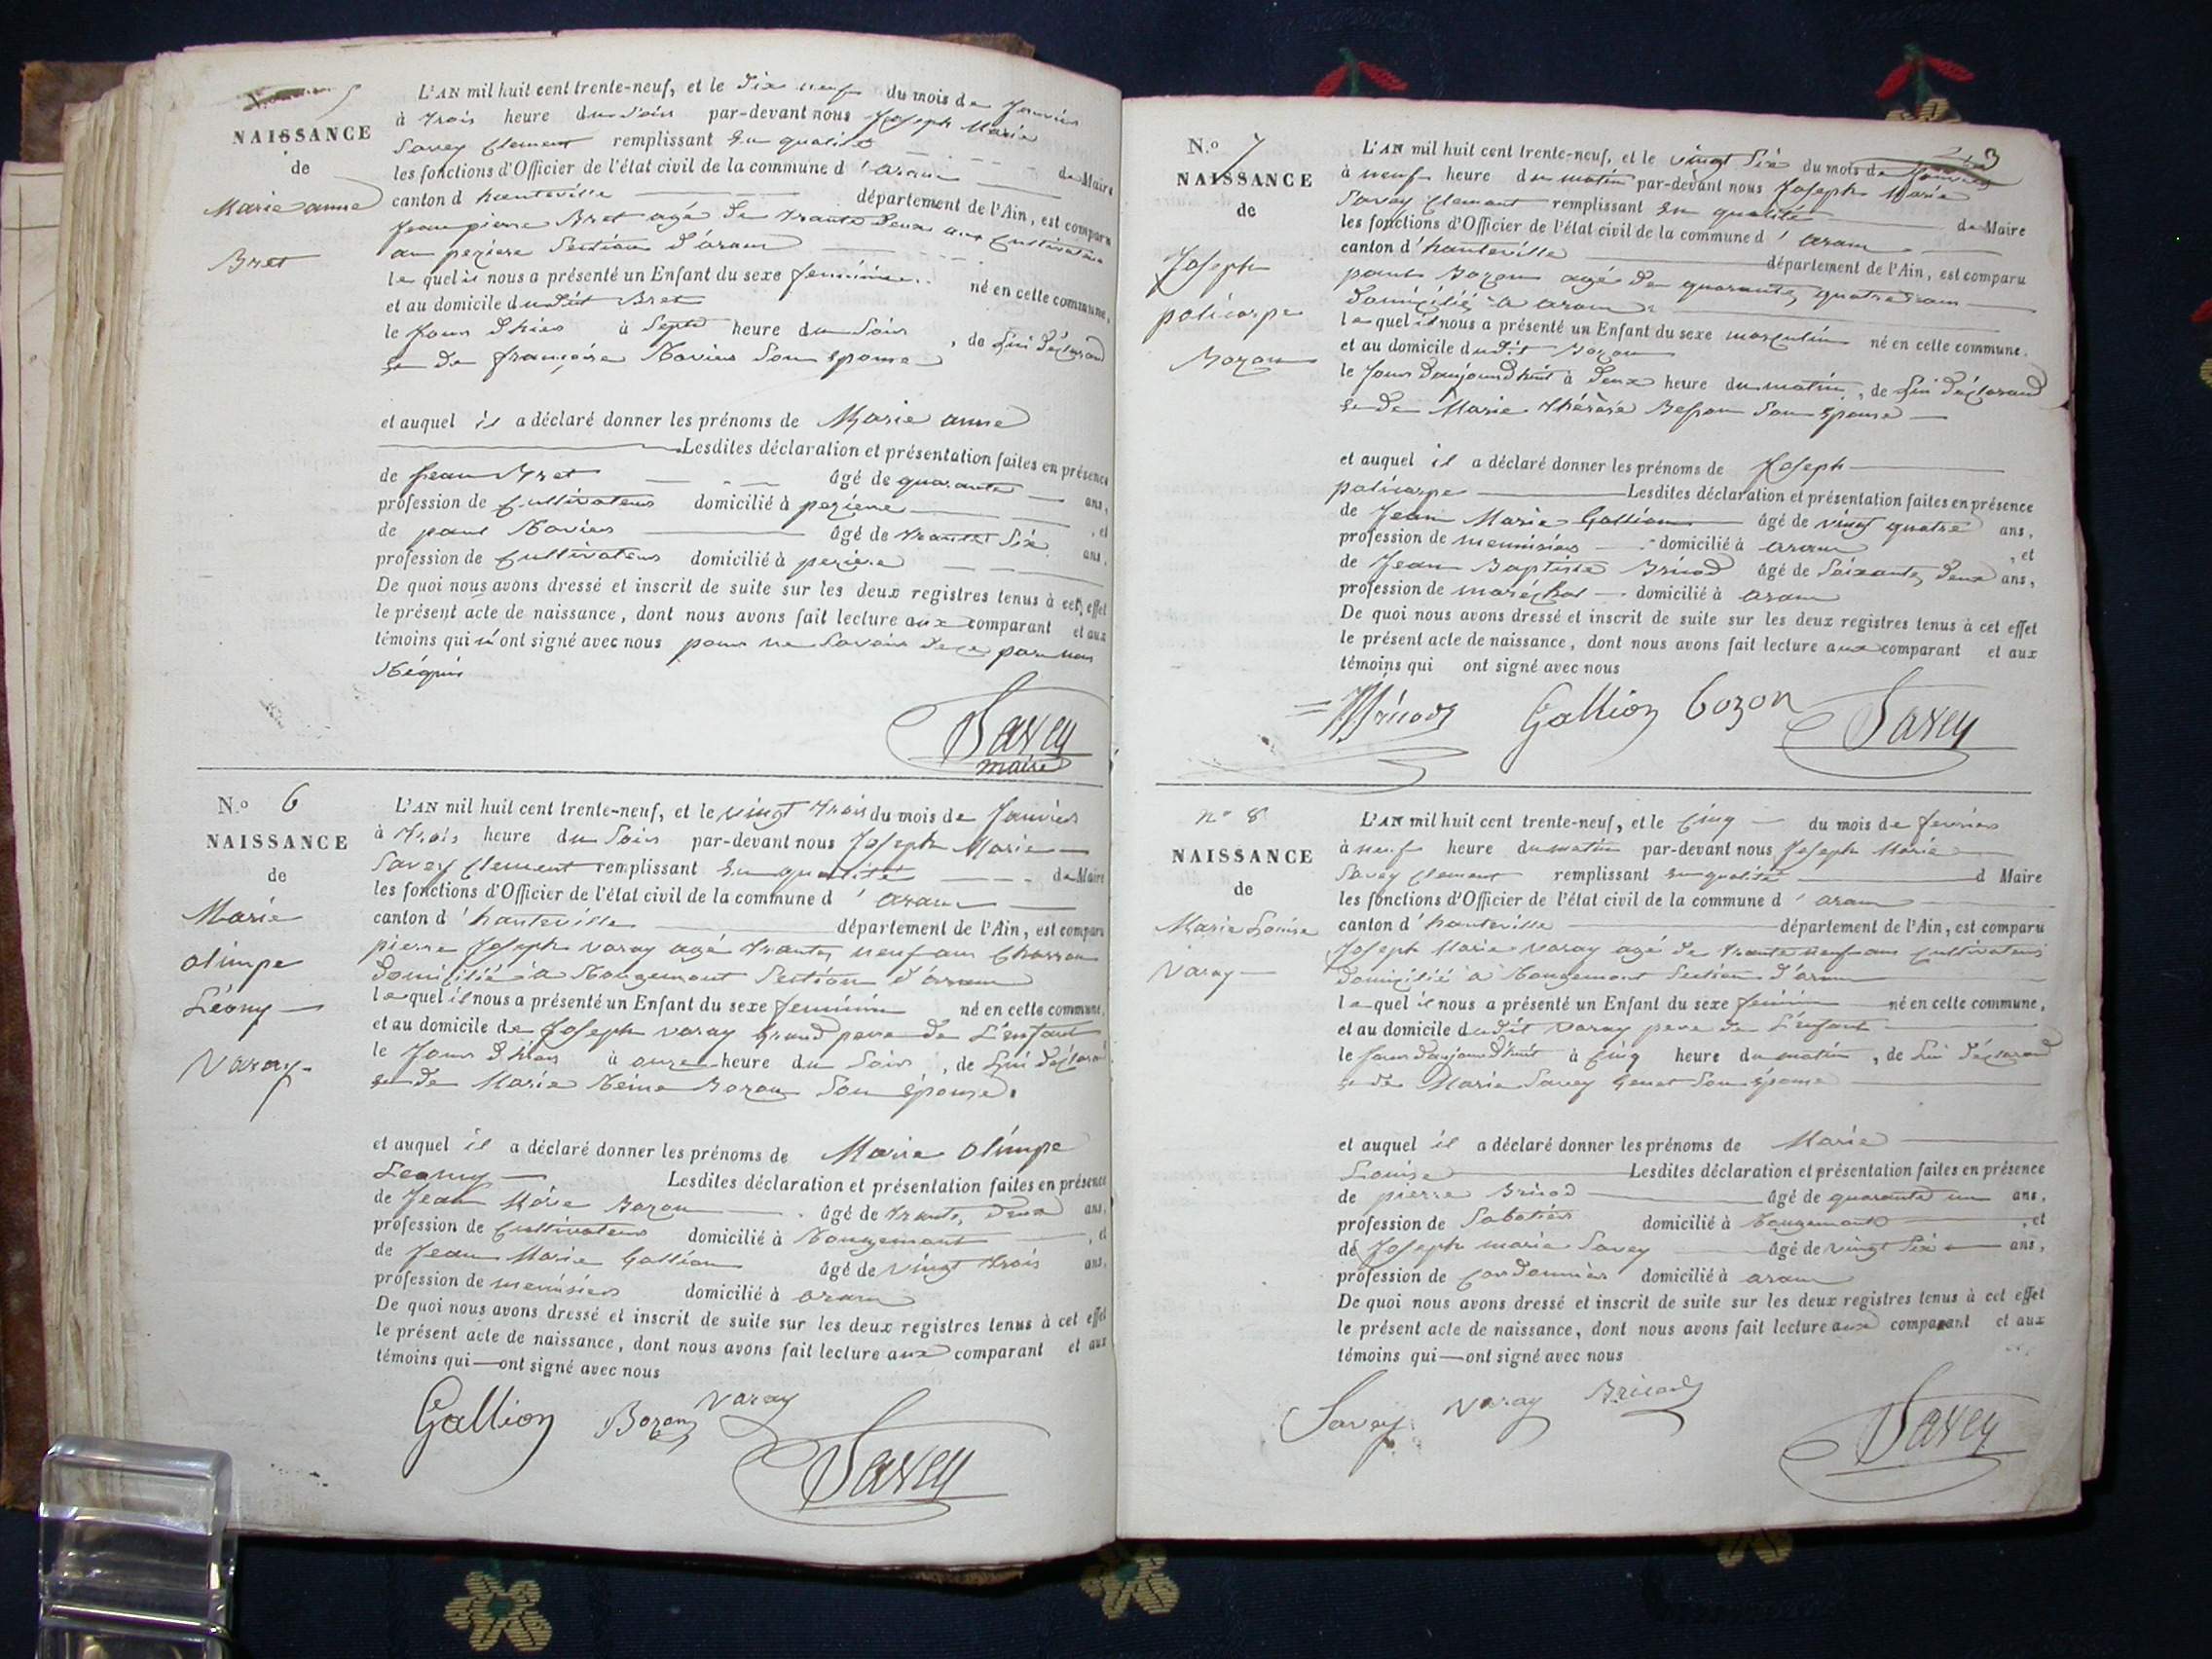 5
NAISSANCE
de
Marie anne
Bret
L'AN mil huit cent trente-neuf, et le dix neuf du mois de Janvier
à trois heure du Soir par-devant nous Joseph Marie
Savey Clement remplissant En qualité de Maire
les fonctions d'Officier de l'état civil de la commune d'aranc
canton d'hauteville département de l'Ain, est comparu
Jean pierre Bret agé de trante deux ans Cultivateur
au peziere Section d'aranc
le quel il nous a présenté un Enfant du sexe feminin né en cette commune,
et au domicile dudit Bret
le Jour d'hier à Sept heure du Soir, de Lui déclarand
et de françoise Savey Son Epouse
et auquel il a déclaré donner les prénoms de Marie anne
Lesdites déclaration et présentation faites en présence
de Jean Bret âgé de quarante ans,
profession de Cultivateur domicilié à peziere
de paul âgé de trante Six ans, et
profession de Cultivateur domicilié à peziere
De quoi nous avons dressé et inscrit de suite sur les deux registres tenus à cet effet
le présent acte de naissance, dont nous avons fait lecture aux comparant et aux
témoins qui n'ont signé avec nous pour ne Savoir de ce par nous
Réquis
Savey
maire
N.o 6
NAISSANCE
de
Marie
olimpe
Léony
Varay
L'AN mil huit cent trente-neuf, et le vingt trois du mois de Janvier
à trois heure du Soir par-devant nous Joseph Marie
Savey Clement remplissant En qualité de Maire
les fonctions d'Officier de l'état civil de la commune d'aranc
canton d'hauteville département de l'Ain, est comparu
pierre Joseph varay agé trante neuf ans Charron
domicilié à Rougemont Section d'aranc
le quel il nous a présenté un Enfant du sexe feminin né en cette commune,
et au domicile de Joseph varay Grand pere de L'enfant
le Jour d'hier à onze heure du Soir, de Lui déclarand
et de Marie Reine Bozon Son Epouse.
et auquel il a déclaré donner les prénoms de Marie olimpe
Leony Lesdites déclaration et présentation faites en présence
de Jean Marie Bozon âgé de trante deux ans,
profession de Cultivateur domicilié à Rougemont, et
de Jean Marie Gallion âgé de vingt trois ans,
profession de menuisier domicilié à aranc
De quoi nous avons dressé et inscrit de suite sur les deux registres tenus à cet effet
le présent acte de naissance, dont nous avons fait lecture aux comparant et aux
témoins qui ont signé avec nous
Gallion Bozon Varay
Savey
N.o 7
NAISSANCE
de
Joseph
policarpe
Bozon
L'AN mil huit cent trente-neuf, et le vingt Six du mois de Janvier
à neuf heure du matin par-devant nous Joseph Marie
Savey Clement remplissant En qualité de Maire
les fonctions d'Officier de l'état civil de la commune d'aranc
canton d'hauteville département de l'Ain, est comparu
paul Bozon agé de quarante, quatre ans
domicilié à aranc
le quel il nous a présenté un Enfant du sexe masculin né en cette commune.
et au domicile dudit Bozon
le Jour d'aujourd'huit à deux heure du matin, de Lui déclarand
et de Marie thérèse Besson Son Epouse
et auquel il a déclaré donner les prénoms de Joseph
policarpe Lesdites déclaration et présentation faites en présence
de Jean Marie Gallion âgé de vingt quatre ans,
profession de menuisier domicilié à aranc, et
de Jean Baptiste Bricod âgé de Soixante, deux ans,
profession de maréchal domicilié à aranc
De quoi nous avons dressé et inscrit de suite sur les deux registres tenus à cet effet
le présent acte de naissance, dont nous avons fait lecture aux comparant et aux
témoins qui ont signé avec nous
Bricod Gallion bozon Savey
n° 8
NAISSANCE
de
Marie Louise
Varay
L'AN mil huit cent trente-neuf, et le Cinq du mois de fevrier
à neuf heure du matin par-devant nous Joseph Marie
Savey Clement remplissant En qualité d Maire
les fonctions d'Officier de l'état civil de la commune d'aranc
canton d'hauteville département de l'Ain, est comparu
Joseph Marie varay agé de trante neuf ans Cultivateur
domicilié à Rougemont Section d'aranc
le quel il nous a présenté un Enfant du sexe feminin né en cette commune,
et au domicile dudit varay pere de L'enfant
le Jour d'aujourd'huit à Cinq heure du matin, de Lui déclarand
et de Marie Savey Genet Son Epouse
et auquel il a déclaré donner les prénoms de Marie
Louise Lesdites déclaration et présentation faites en présence
de pierre Bricod âgé de quarante un ans,
profession de Sabotier domicilié à Rougemont, et
de Joseph marie Savey âgé de vingt Six ans,
profession de Cordonnier domicilié à aranc
De quoi nous avons dressé et inscrit de suite sur les deux registres tenus à cet effet
le présent acte de naissance, dont nous avons fait lecture aux comparant et aux
témoins qui ont signé avec nous
Savey Varay Bricod
Savey